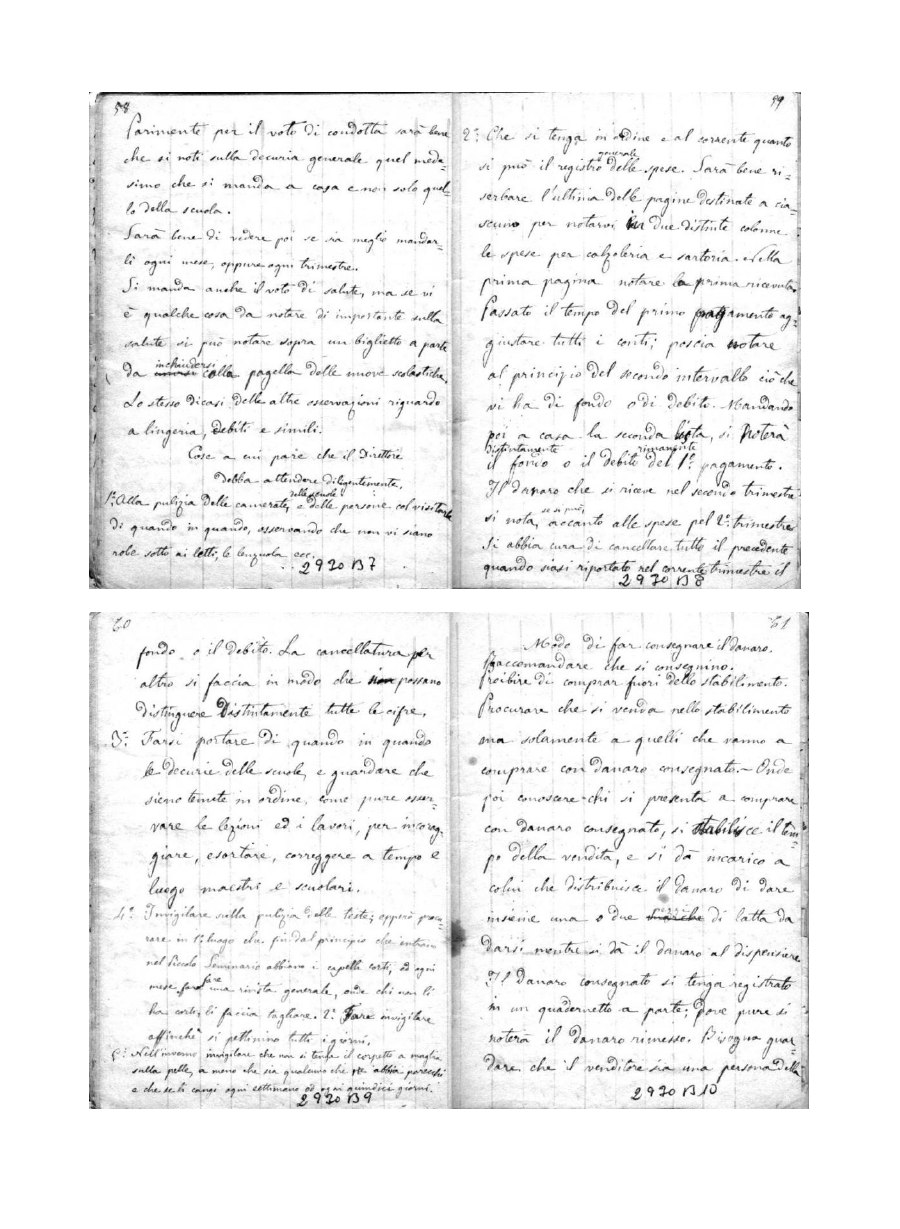 58
Parimente per il voto di condotta sarà bene
che si noti sulla decuria generale quel mede=
simo che si manda a casa e non solo quel=
lo della scuola.
Sarà bene di vedere poi se sia meglio mandar=
li ogni mese, oppure ogni trimestre.
Si manda anche il voto di salute, ma se vi
è qualche cosa da notare di importante sulla
salute si può notare sopra un biglietto a parte
inchiudersi
da colla pagella delle nuove scolastiche.
Lo stesso dicasi delle altre osservazioni riguardo
a lingeria, debiti e simili.
Cose a cui pare che il Direttore
debba attendere diligentemente.
delle scuole
1º Alla pulizia delle camerate, e delle persone col visitarle
di quando in quando, osservando che non vi siano
robe sotto ai letti, le lenzuola ecc.
2920 B7
59
2º Che si tenga in ordine e al corrente quanto
generale
si può il registro delle spese. Sarà bene ri=
serbare l'ultima delle pagine destinate a cia=
scuno per notarvi in due distinte colonne
le spese per calzoleria e sartoria. Nella
prima pagina notare la prima ricevuta.
Passato il tempo del primo pagamento ag=
giustare tutti i conti; poscia notare
al principio del secondo intervallo ciò che
vi ha di fondo o di debito. Mandando
poi a casa la seconda lista, si noterà
distintamente rimanente
il fondo o il debito del 1º pagamento.
Il danaro che si riceve nel secondo trimestre
se si può,
si nota, accanto alle spese pel 2º trimestre
Si abbia cura di cancellare tutto il precedente
quando siasi riportato nel corrente trimestre il
2920 B8
60
fondo o il debito. La cancellatura per
altro si faccia in modo che possano
distinguere distintamente tutte le cifre.
3º Farsi portare di quando in quando
le decurie delle scuole, e guardare che
sieno tenute in ordine, come pure osser=
vare le lezioni ed i lavori, per incorag=
giare, esortare, correggere a tempo e
luogo maestri e scolari.
4º Invigilare sulla pulizia delle teste; epperò procu
rare in 1º luogo che fin dal principio che entrano
nel Piccolo Seminario abbiano i capelli corti, ed ogni
fare
mese una rivista generale, onde chi non li
ha corti, li faccia tagliare. 2º Fare invigilare
affinchè si pettinino tutti i giorni.
Nell'inverno invigilare che non si tenga il corpetto a maglia
sulla pelle, a meno che sia qualcuno che ne abbia parecchi
e che se li cangi ogni settimana od ogni quindici giorni.
2920 B9
61
Modo di far consegnare il danaro.
Raccomandare che si consegnino.
Proibire di comprar fuori dello stabilimento.
Procurare che si venda nello stabilimento
ma solamente a quelli che vanno a
comprare con danaro consegnato. — Onde
poi conoscere chi si presenta a comprare
con danaro consegnato, si stabilisce il tem=
po della vendita, e si dà incarico a
colui che distribuisce il danaro di dare
pezzi
insieme una o due marche di latta da
darsi mentre si dà il danaro al dispensiere
Il danaro consegnato si tenga registrato
in un quadernetto a parte; dove pure si
noterà il danaro rimesso. Bisogna guar=
dare che il venditore sia una persona della
2920 B10